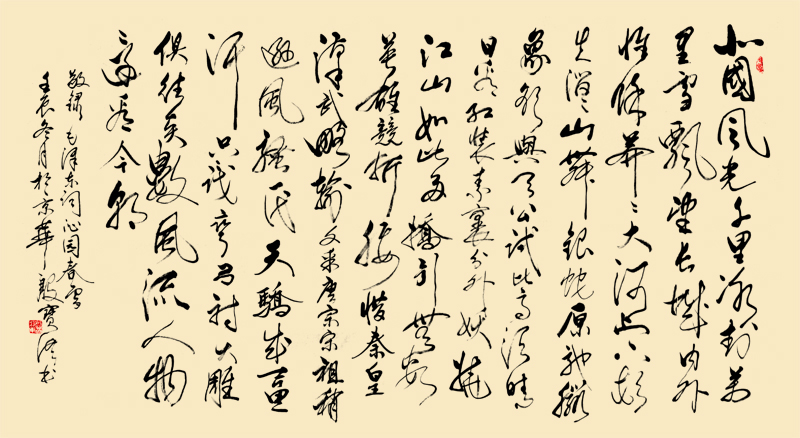 北國風光千里冰封萬
里雪飄望長城内外
惟餘莽々大河上下頓
失滔々山舞銀蛇原馳臘
象欲與天公試比高須晴
日看紅裝素裹分外妖嬈
江山如此多嬌引無數
英雄競折腰惜秦皇
漢武略輸文采唐宗宋祖稍
遜風騷一代天驕成吉思
汗只識彎弓射大雕
俱往矣數風流人物
還看今朝
敬錄毛澤東詞沁園春雪
壬辰冬月於京華殷寶书